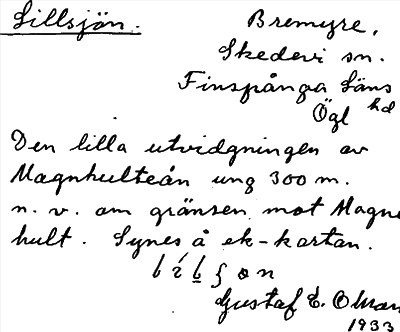 Lillsjön.
Bremyre,
Skedevi sn.
Finspånga Läns
hd
Ögl
Den lilla utvidgningen av
Magnhulteån ung 300 m.
n. v. om gränsen mot Magne
hult. Synes å ek-kartan.
Gustaf E. Olsson
1933